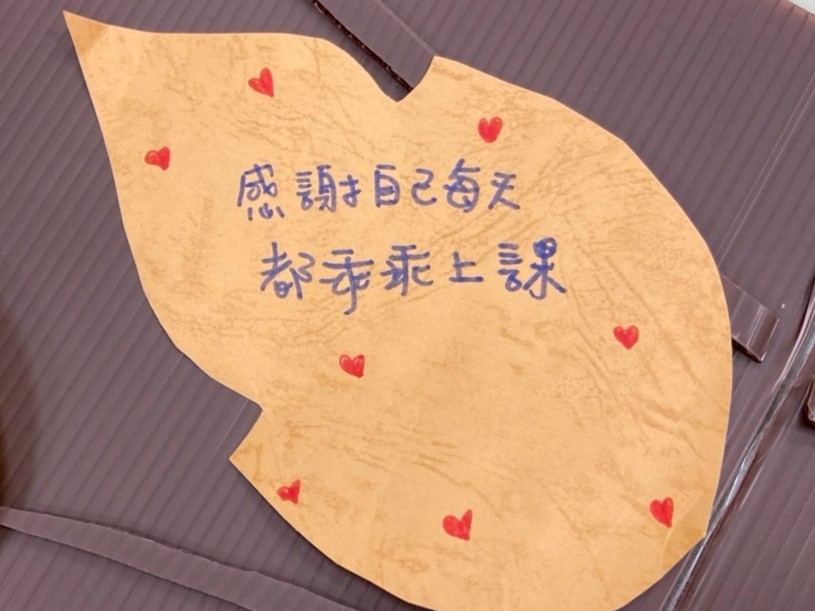 感謝自己每天
都乖乖上課